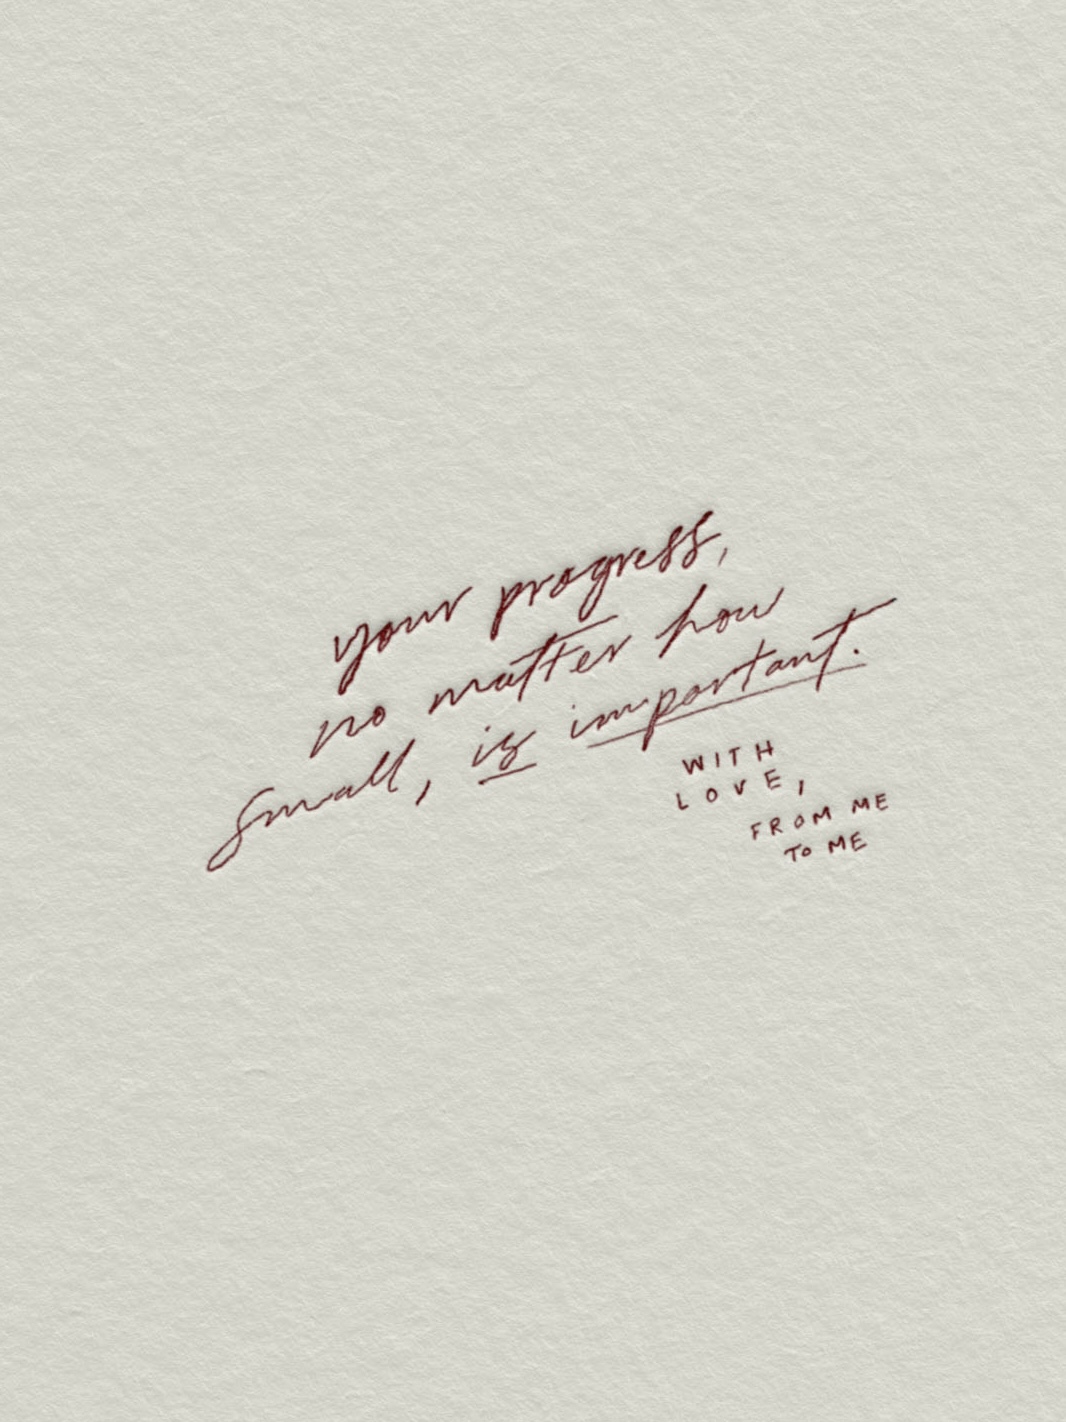 your progress,
no matter how
small, is important.
WITH
LOVE,
FROM ME
TO ME